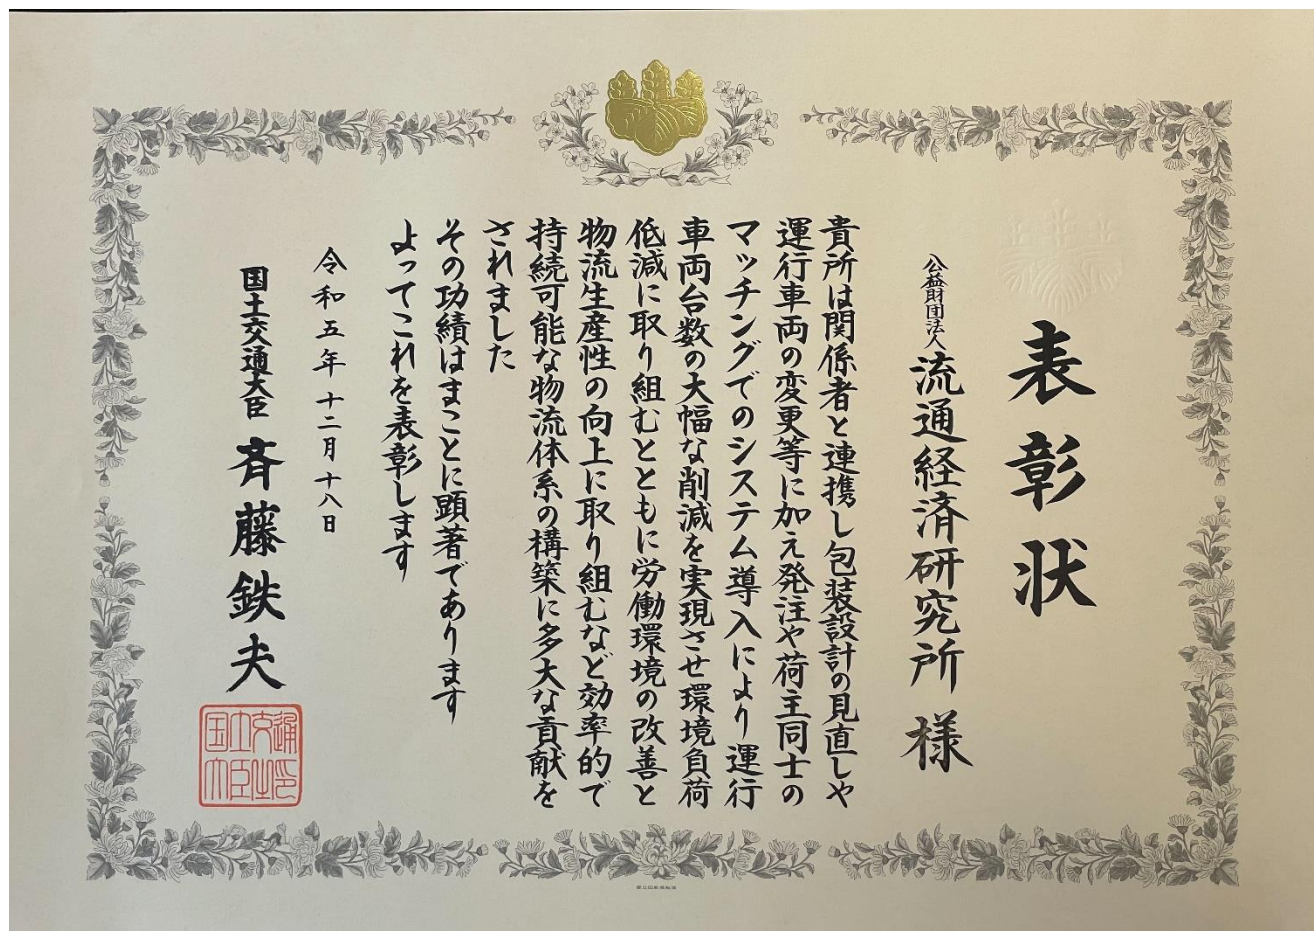 表彰状
公益財団法人 流通経済研究所 様
貴所は関係者と連携し包装設計の見直しや
運行車両の変更等に加え発注や荷主同士の
マッチングでのシステム導入により運行
車両台数の大幅な削減を実現させ環境負荷
低減に取り組むとともに労働環境の改善と
物流生産性の向上に取り組むなど効率的で
持続可能な物流体系の構築に多大な貢献を
されました
その功績はまことに顕著であります
よってこれを表彰します
令和五年十二月十八日
国土交通大臣 斉藤鉄夫
国土交通
大臣之印